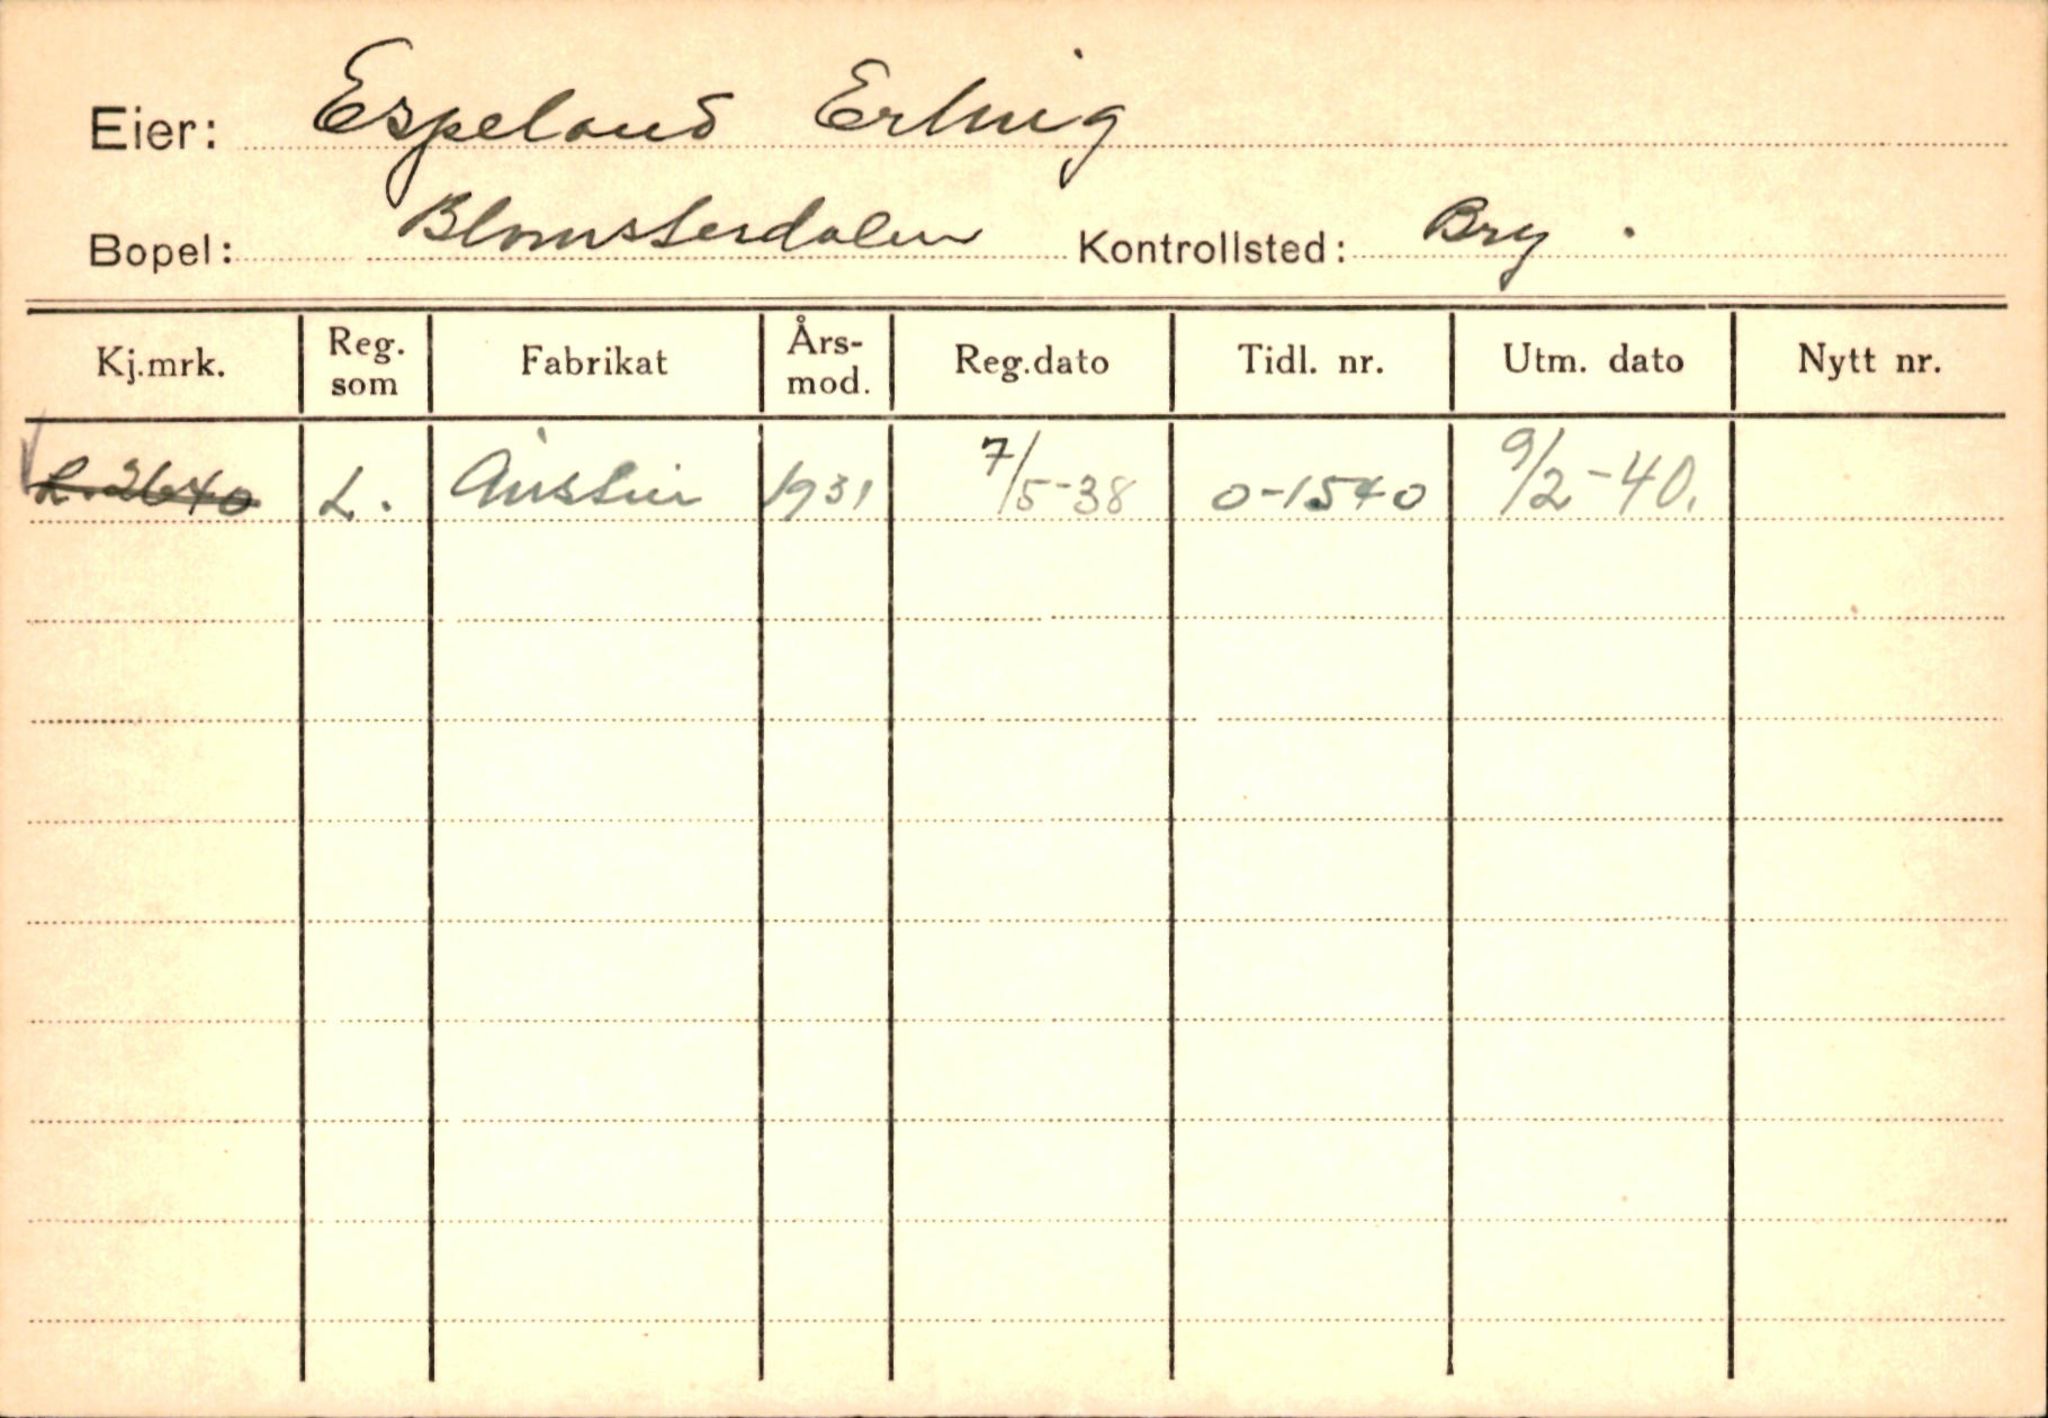 Eier: Espeland Erling
Bopel: Blomsterdalen Kontrollsted: Bry.
Kj.mrk. Reg. som Fabrikat Års-mod. Reg.dato Tidl. nr. Utm. dato Nytt nr.
L. 2640 L. Austin 1931 7/5-38 O-1540 9/2-40.